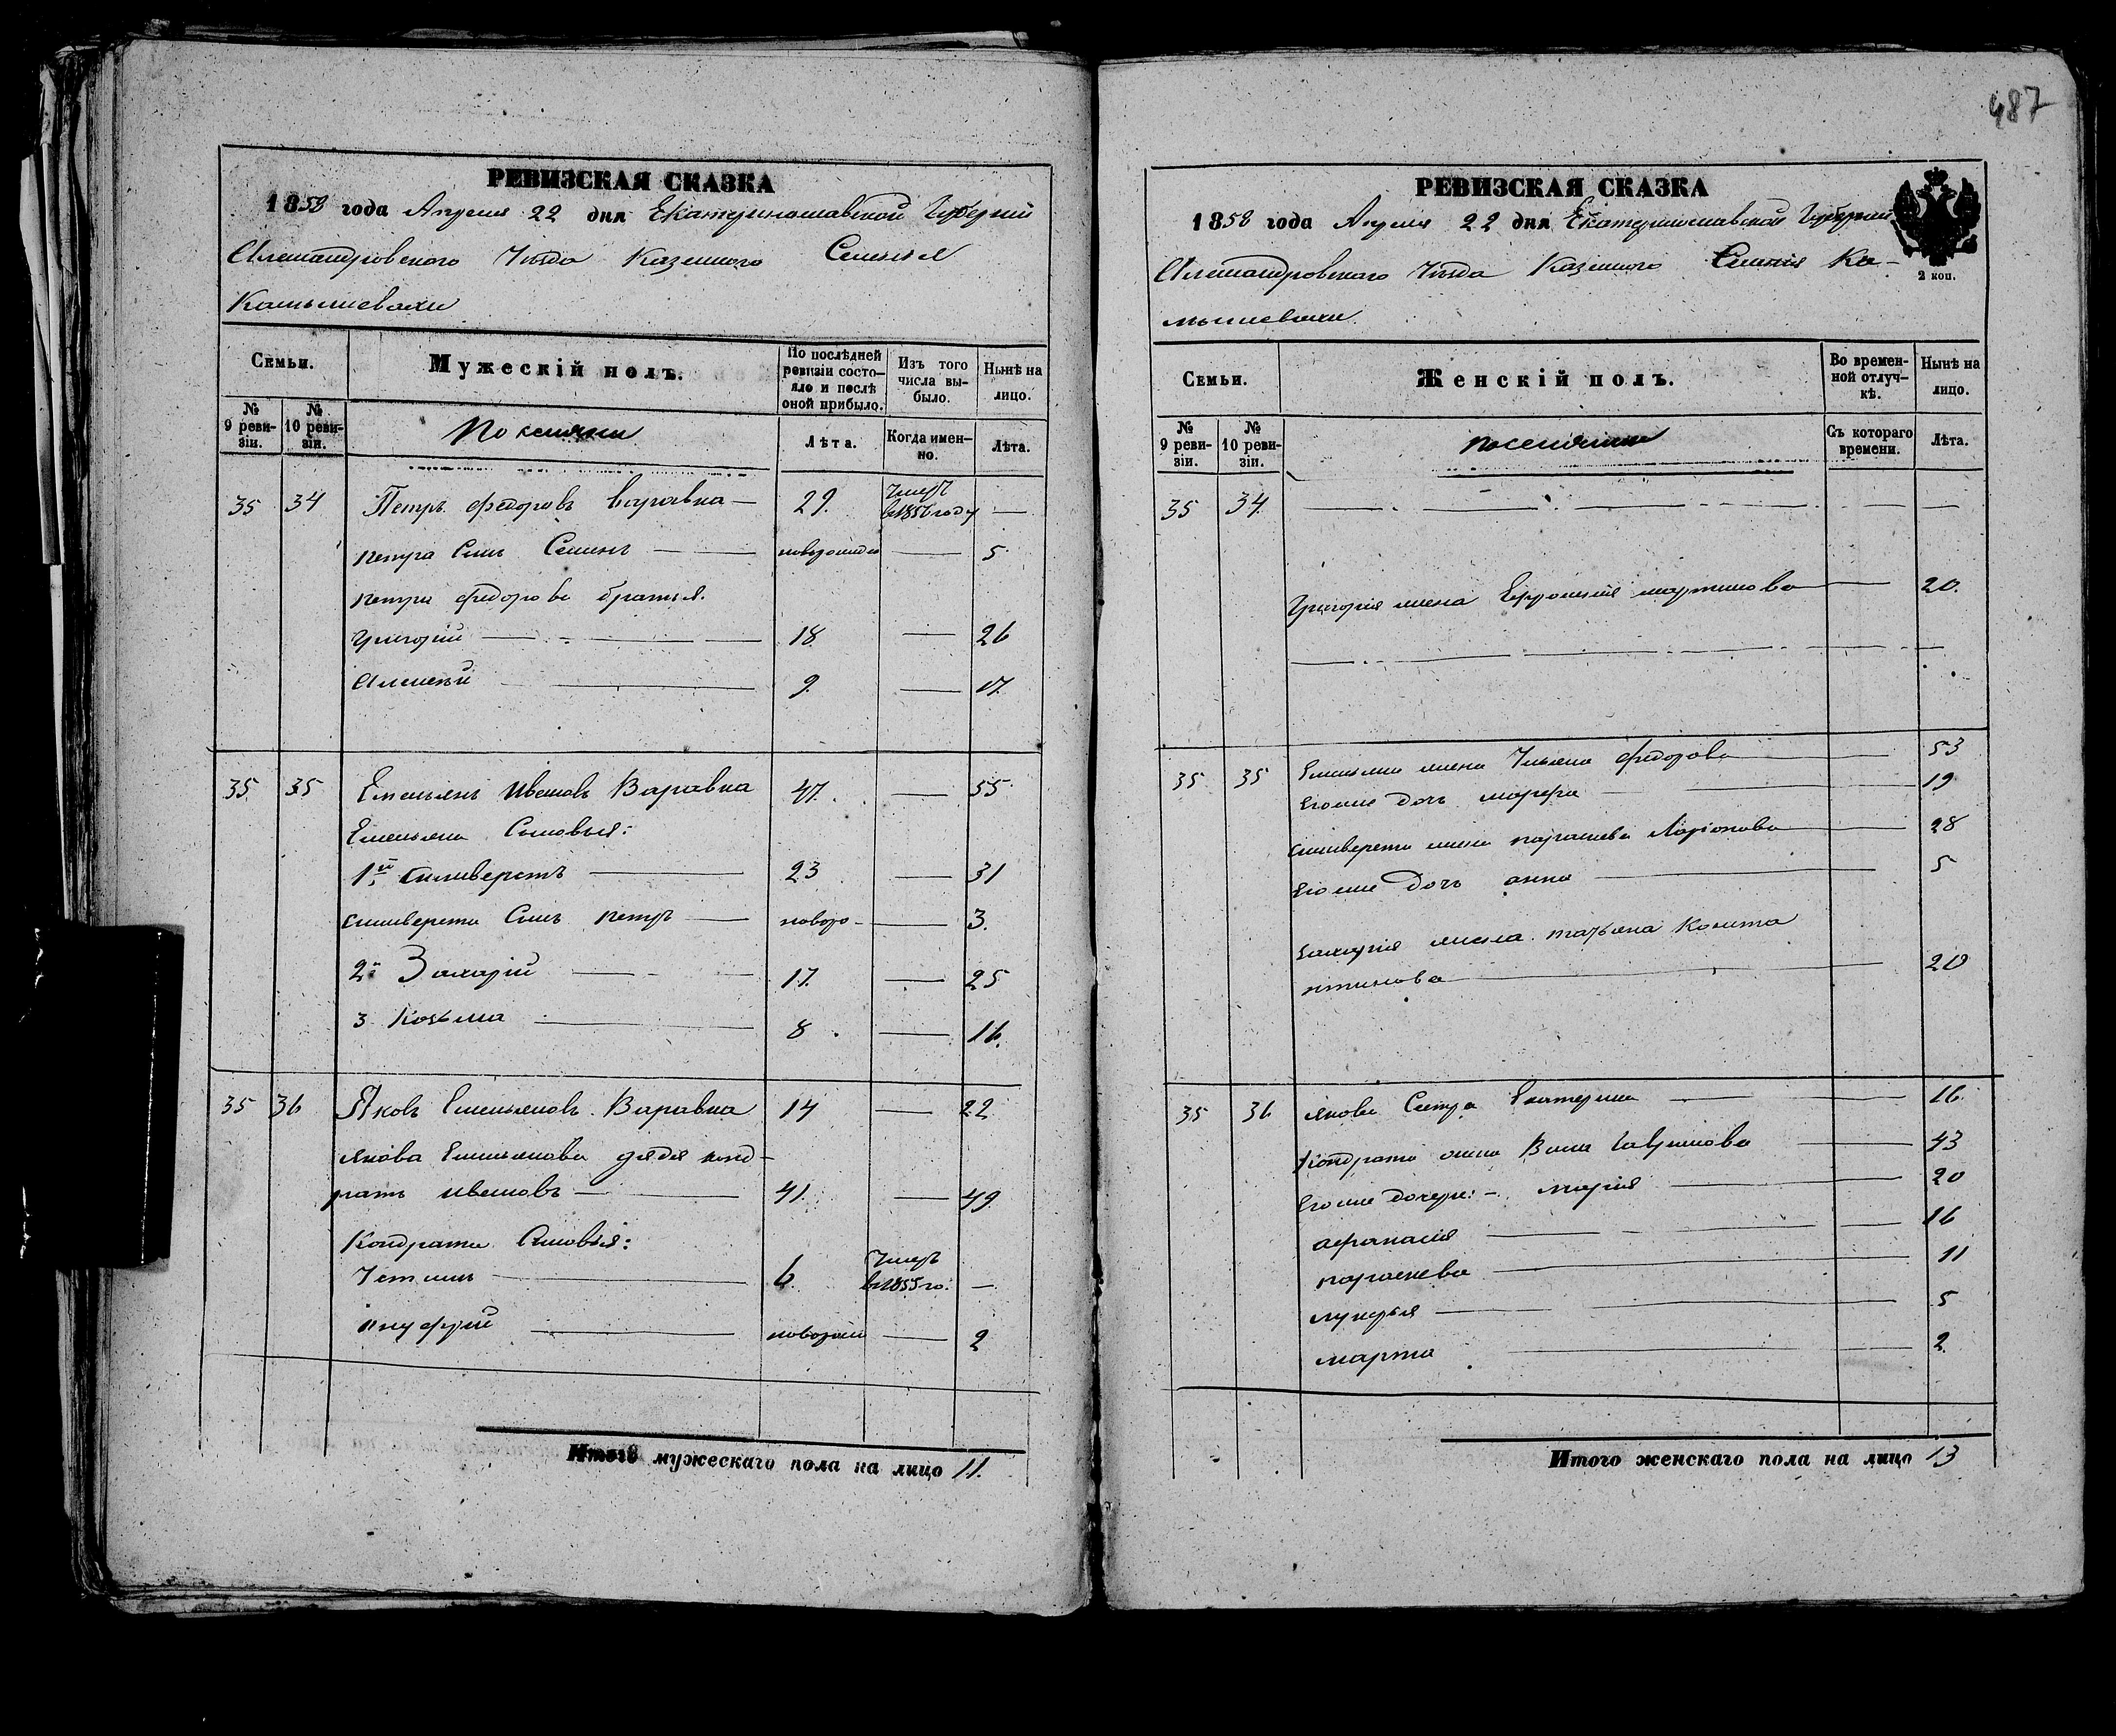 487
РЕВИЗСКАЯ СКАЗКА
1858 года Апреля 22 дня Екатеринославской Губернии
Александровского Уезда Казенного Селения
Камышевахи
Семьи.
Мужескій полъ.
По послѣдней ревизіи состояло и послѣ оной прибыло.
Изъ того числа выбыло.
Нынѣ на лицо.
№ 9 ревизіи.
№ 10 ревизіи.
Поселяни
Лѣта.
Когда именно.
Лѣта.
35 34 Петръ Федоровъ Варавка — 29. Умеръ в 1856 году —
Петра Сынъ Семенъ — — 5
Петра Федорова братья.
Григорій — 18. — 26
Алексей — 9. — 17.
35 35 Емельянъ Ивановъ Варавка 47. — 55
Емельяна Сыновья:
1й Силиверстъ — 23 — 31
Силиверста Сынъ Петръ — новоро- — 3.
2й Захарій — 17. — 25
3 Козьма — 8 — 16.
35 36 Яковъ Емельяновъ Варавка 14 — 22
Якова Емельянова дядя Конд-
ратъ Ивановъ — 41. — 49
Кондрата Сыновья:
Устинъ — 6. Умеръ в 1855 го. —
Онуфрій — — 2
Итого мужескаго пола на лицо 11.
РЕВИЗСКАЯ СКАЗКА
1858 года Апреля 22 дня Екатеринославской Губернии
Александровского Уезда Казенного Селения Ка-
мышевахи
2 коп.
Семьи.
Женскій полъ.
Во временной отлучкѣ.
Нынѣ на лицо.
№ 9 ревизіи.
№ 10 ревизіи.
Съ котораго времени.
Лѣта.
35 34. — — —
Григорія жена Ефросинія Мартинова — 20.
35 35 Емельяна жена Ульяна Федорова — 53
Его же дочь Марфа — 19
Силиверста жена Параскева Ларіонова — 28
Его же дочь Анна — 5
Захарія жена Татьяна Конста
нтинова — 20
35 36 Якова Сестра Екатерина — 16.
Кондрата жена Васса Гаврилова — 43
Его же дочери: — Марія — 20
Афанасія — 16
Параскева — 11
Лукерья — 5
Марта — 2.
Итого женскаго пола на лицо 13